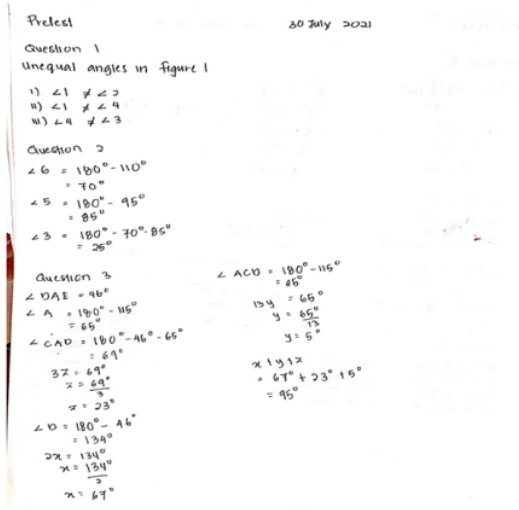 Pretest
30 July 2021
Question 1
Unequal angles in figure 1
i) ∠1 ≠ ∠2
ii) ∠1 ≠ ∠4
iii) ∠4 ≠ ∠3
Question 2
∠6 = 180° - 110°
= 70°
∠5 = 180° - 95°
= 85°
∠3 = 180° - 70° - 85°
= 25°
Question 3
∠DAE = 46°
∠A = 180° - 115°
= 65°
∠CAD = 180° - 46° - 65°
= 69°
3z = 69°
z = 69°
3
z = 23°
∠D = 180° - 46°
= 134°
2x = 134°
x = 134°
2
x = 67°
∠ACD = 180° - 115°
= 65°
13y = 65°
y = 65°
13
y = 5°
x + y + z
= 67° + 23° + 5°
= 95°